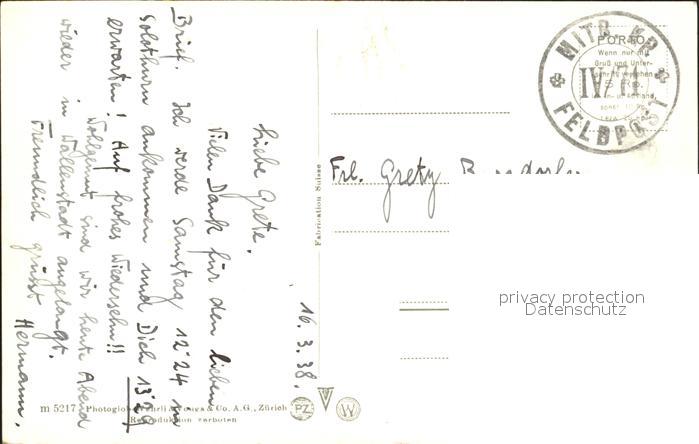 16.3.38.
Liebe Grete.
Vielen Dank für den lieben
Brief. Ich werde Samstag 12²⁴ in
Solothurn ankommen und Dich 13²⁹
erwarten! Auf frohes Wiedersehn!!
Wohlgemut sind wir heute Abend
wieder in Wallenstadt angelangt.
Freundlich grüsst Hermann.
Frl. Grety
MITR. KP.
IV/71
FELDPOST
PORTO
Wenn nur mit
Gruß und Unter-
schrift versehen
5 Rp.
Fabrication Suisse
privacy protection
Datenschutz
m 5217 Photoglob-Wehrli & Vouga & Co. A.G., Zürich
Reproduktion verboten
PZ
V
W